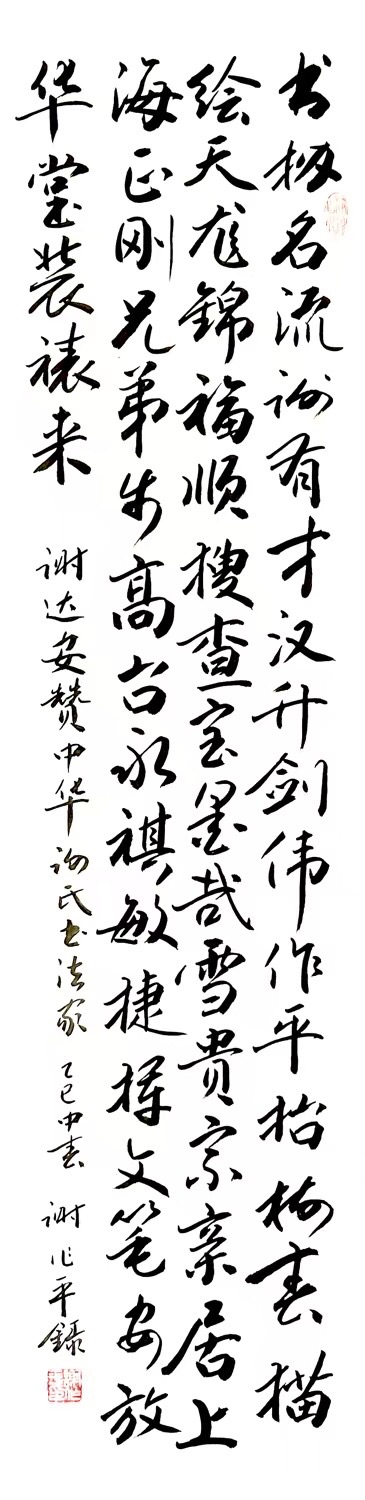 书报名流谢有才汉升剑伟作平抬梅春描
绘天龙锦福顺搜查宝墨哉雪贵宗亲居上
海正刚兄弟步高台永祺敏捷挥文笔安放
华堂装裱来
谢达安赞中华谢氏书法家 乙巳中春 谢作平錄